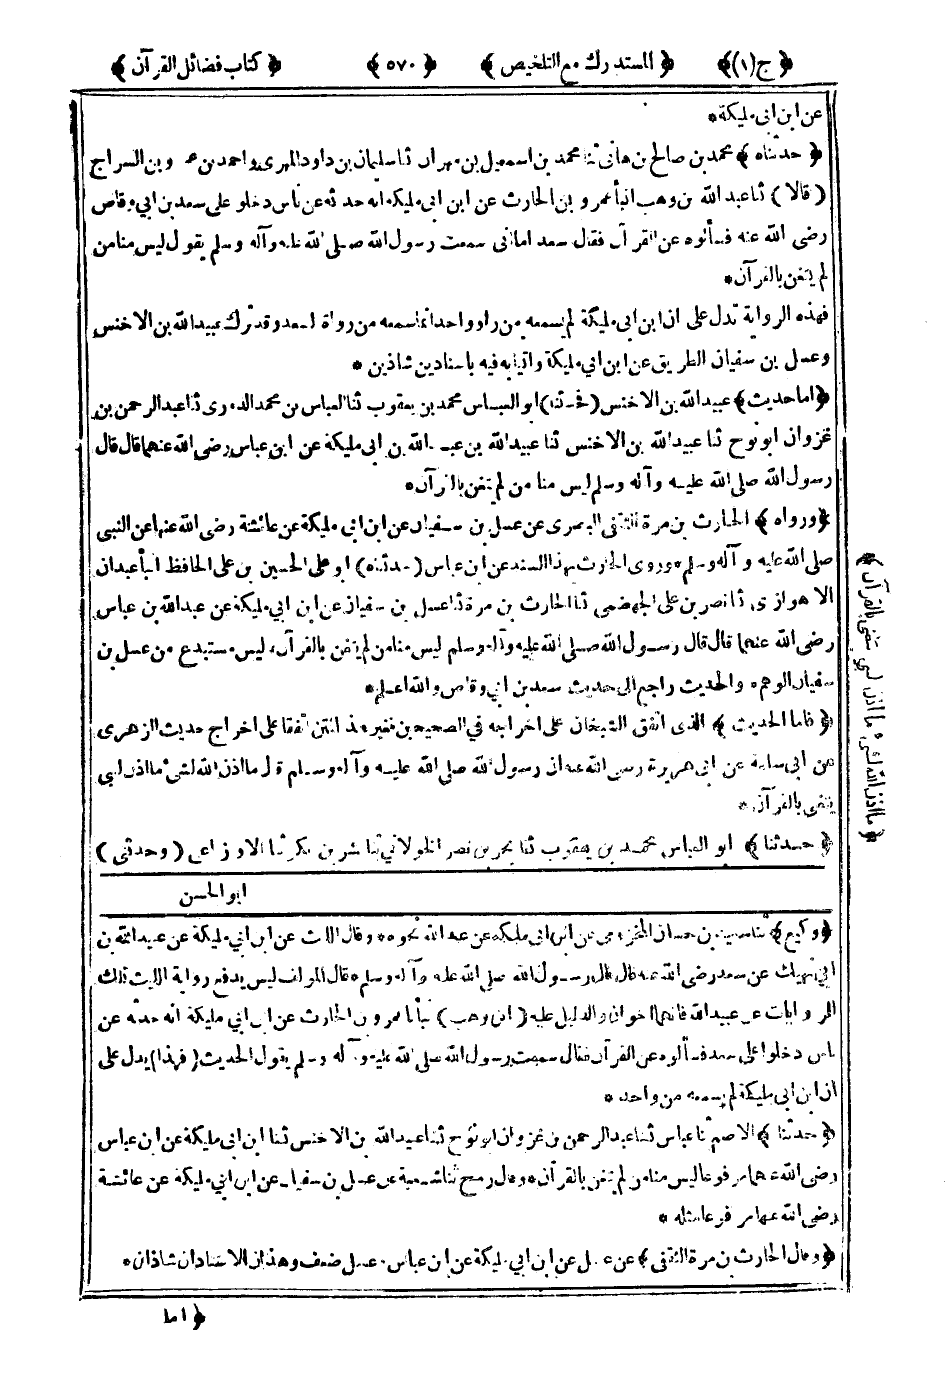 ﴿ج(١)﴾ ﴿المستدرك مع التلخيص﴾ ﴿٥٧٠﴾ ﴿كتاب فضائل القرآن﴾
عن ابن ابى مليكة*
﴿حدثناه﴾ محمد بن صالح بن هانى ثنا محمد بن اسمعيل بن مهران ثنا سليمان بن داود المهرى واحمد بن عمرو بن السراج
(قالا) ثنا عبد الله بن وهب انبأ عمرو بن الحارث عن ابن ابى مليكة انه حدثه عن ناس دخلوا على سعد بن ابى وقاص
رضى الله عنه فسألوه عن القرآن فقال سعد اما انى سمعت رسول الله صلى الله عليه وآله وسلم يقول ليس منا من
لم يتغن بالقرآن*
فهذه الرواية تدل على ان ابن ابى مليكة لم يسمعه من راو واحد انما سمعه من رواة لسعد وقد ترك عبيد الله بن الاخنس
وعسل بن سفيان الطريق عن ابن ابى مليكة واتيا به فيه باسنادين شاذين*
﴿اما حديث﴾ عبيد الله بن الاخنس (فحدثنا) ابو العباس محمد بن يعقوب ثنا العباس بن محمد الدورى ثنا عبد الرحمن بن
غزوان ابو نوح ثنا عبيد الله بن الاخنس ثنا عبيد الله بن عبد الله بن ابى مليكة عن ابن عباس رضى الله عنهما قال قال
رسول الله صلى الله عليه وآله وسلم ليس منا من لم يتغن بالقرآن*
﴿ورواه﴾ الحارث بن مرة الثقفى البصرى عن عسل بن سفيان عن ابن ابى مليكة عن عائشة رضى الله عنها عن النبى
صلى الله عليه وآله وسلم* وروى الحارث بهذا السند عن ابن عباس (حدثناه) ابو على الحسين بن على الحافظ انبأ عبدان
الاهوازى ثنا نصر بن على الجهضمى ثنا الحارث بن مرة ثنا عسل بن سفيان عن ابن ابى مليكة عن عبد الله بن عباس
رضى الله عنهما قال قال رسول الله صلى الله عليه وآله وسلم ليس منا من لم يتغن بالقرآن، ليس مستبدع من عسل بن
سفيان الوهم* والحديث راجع الى حديث سعد بن ابى وقاص والله اعلم*
﴿فاما الحديث﴾ الذى اتفق الشيخان على اخراجه فى الصحيحين فغير هذا المتن اتفقا على اخراج حديث الزهرى
عن ابى سلمة عن ابى هريرة رضى الله عنه ان رسول الله صلى الله عليه وآله وسلم قال ما اذن الله لشئ ما اذن لنبى
يتغنى بالقرآن*
﴿حدثنا﴾ ابو العباس محمد بن يعقوب ثنا بحر بن نصر الخولانى ثنا بشر بن بكر ثنا الاوزاعى (وحدثنى)
ابو الحسن
﴿وكيع﴾ ثنا سعيد بن حسان المخزومى عن ابن ابى مليكة عن عبد الله نحوه* وقال الليث عن ابن ابى مليكة عن عبد الله بن
ابى نهيك عن سعد رضى الله عنه قال قال رسول الله صلى الله عليه وآله وسلم* قال المؤلف ليس يدفع رواية الليث تلك
الروايات عن عبيد الله فانهما اخوان والدليل عليه (ابن وهب) انبأنا عمرو بن الحارث عن ابن ابى مليكة انه حدثه عن
ناس دخلوا على سعد فسألوه عن القرآن فقال سمعت رسول الله صلى الله عليه وآله وسلم يقول الحديث (فهذا) يدل على
ان ابن ابى مليكة لم يسمعه من واحد*
﴿حدثنا﴾ الاصم ثنا عباس ثنا عبد الرحمن بن غزوان ابو نوح ثنا عبيد الله بن الاخنس ثنا ابن ابى مليكة عن ابن عباس
رضى الله عنهما مرفوعا ليس منا من لم يتغن بالقرآن* وقال روح ثنا شعبة عن عسل بن سفيان عن ابن ابى مليكة عن عائشة
رضى الله عنها مرفوعا مثله*
﴿وقال الحارث بن مرة الثقفى﴾ عن عسل عن ابن ابى مليكة عن ابن عباس، عسل ضعف وهذان الاسنادان شاذان*
﴿اما
﴿ما اذن الله لشئ ما اذن لنبى يتغنى بالقرآن﴾